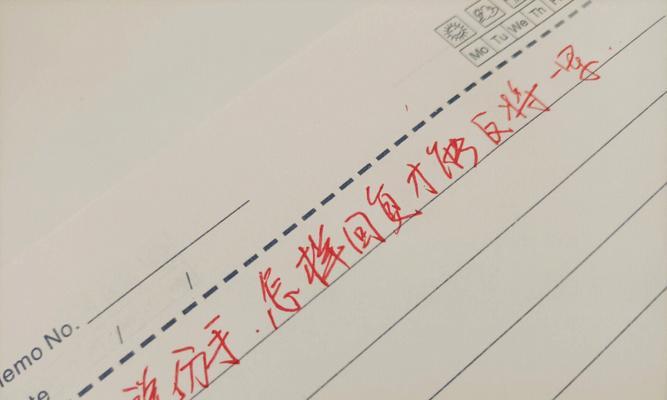 Mo Tu We Th Fr
Memo No.
/ /
分手.怎样回复才能反将一军.